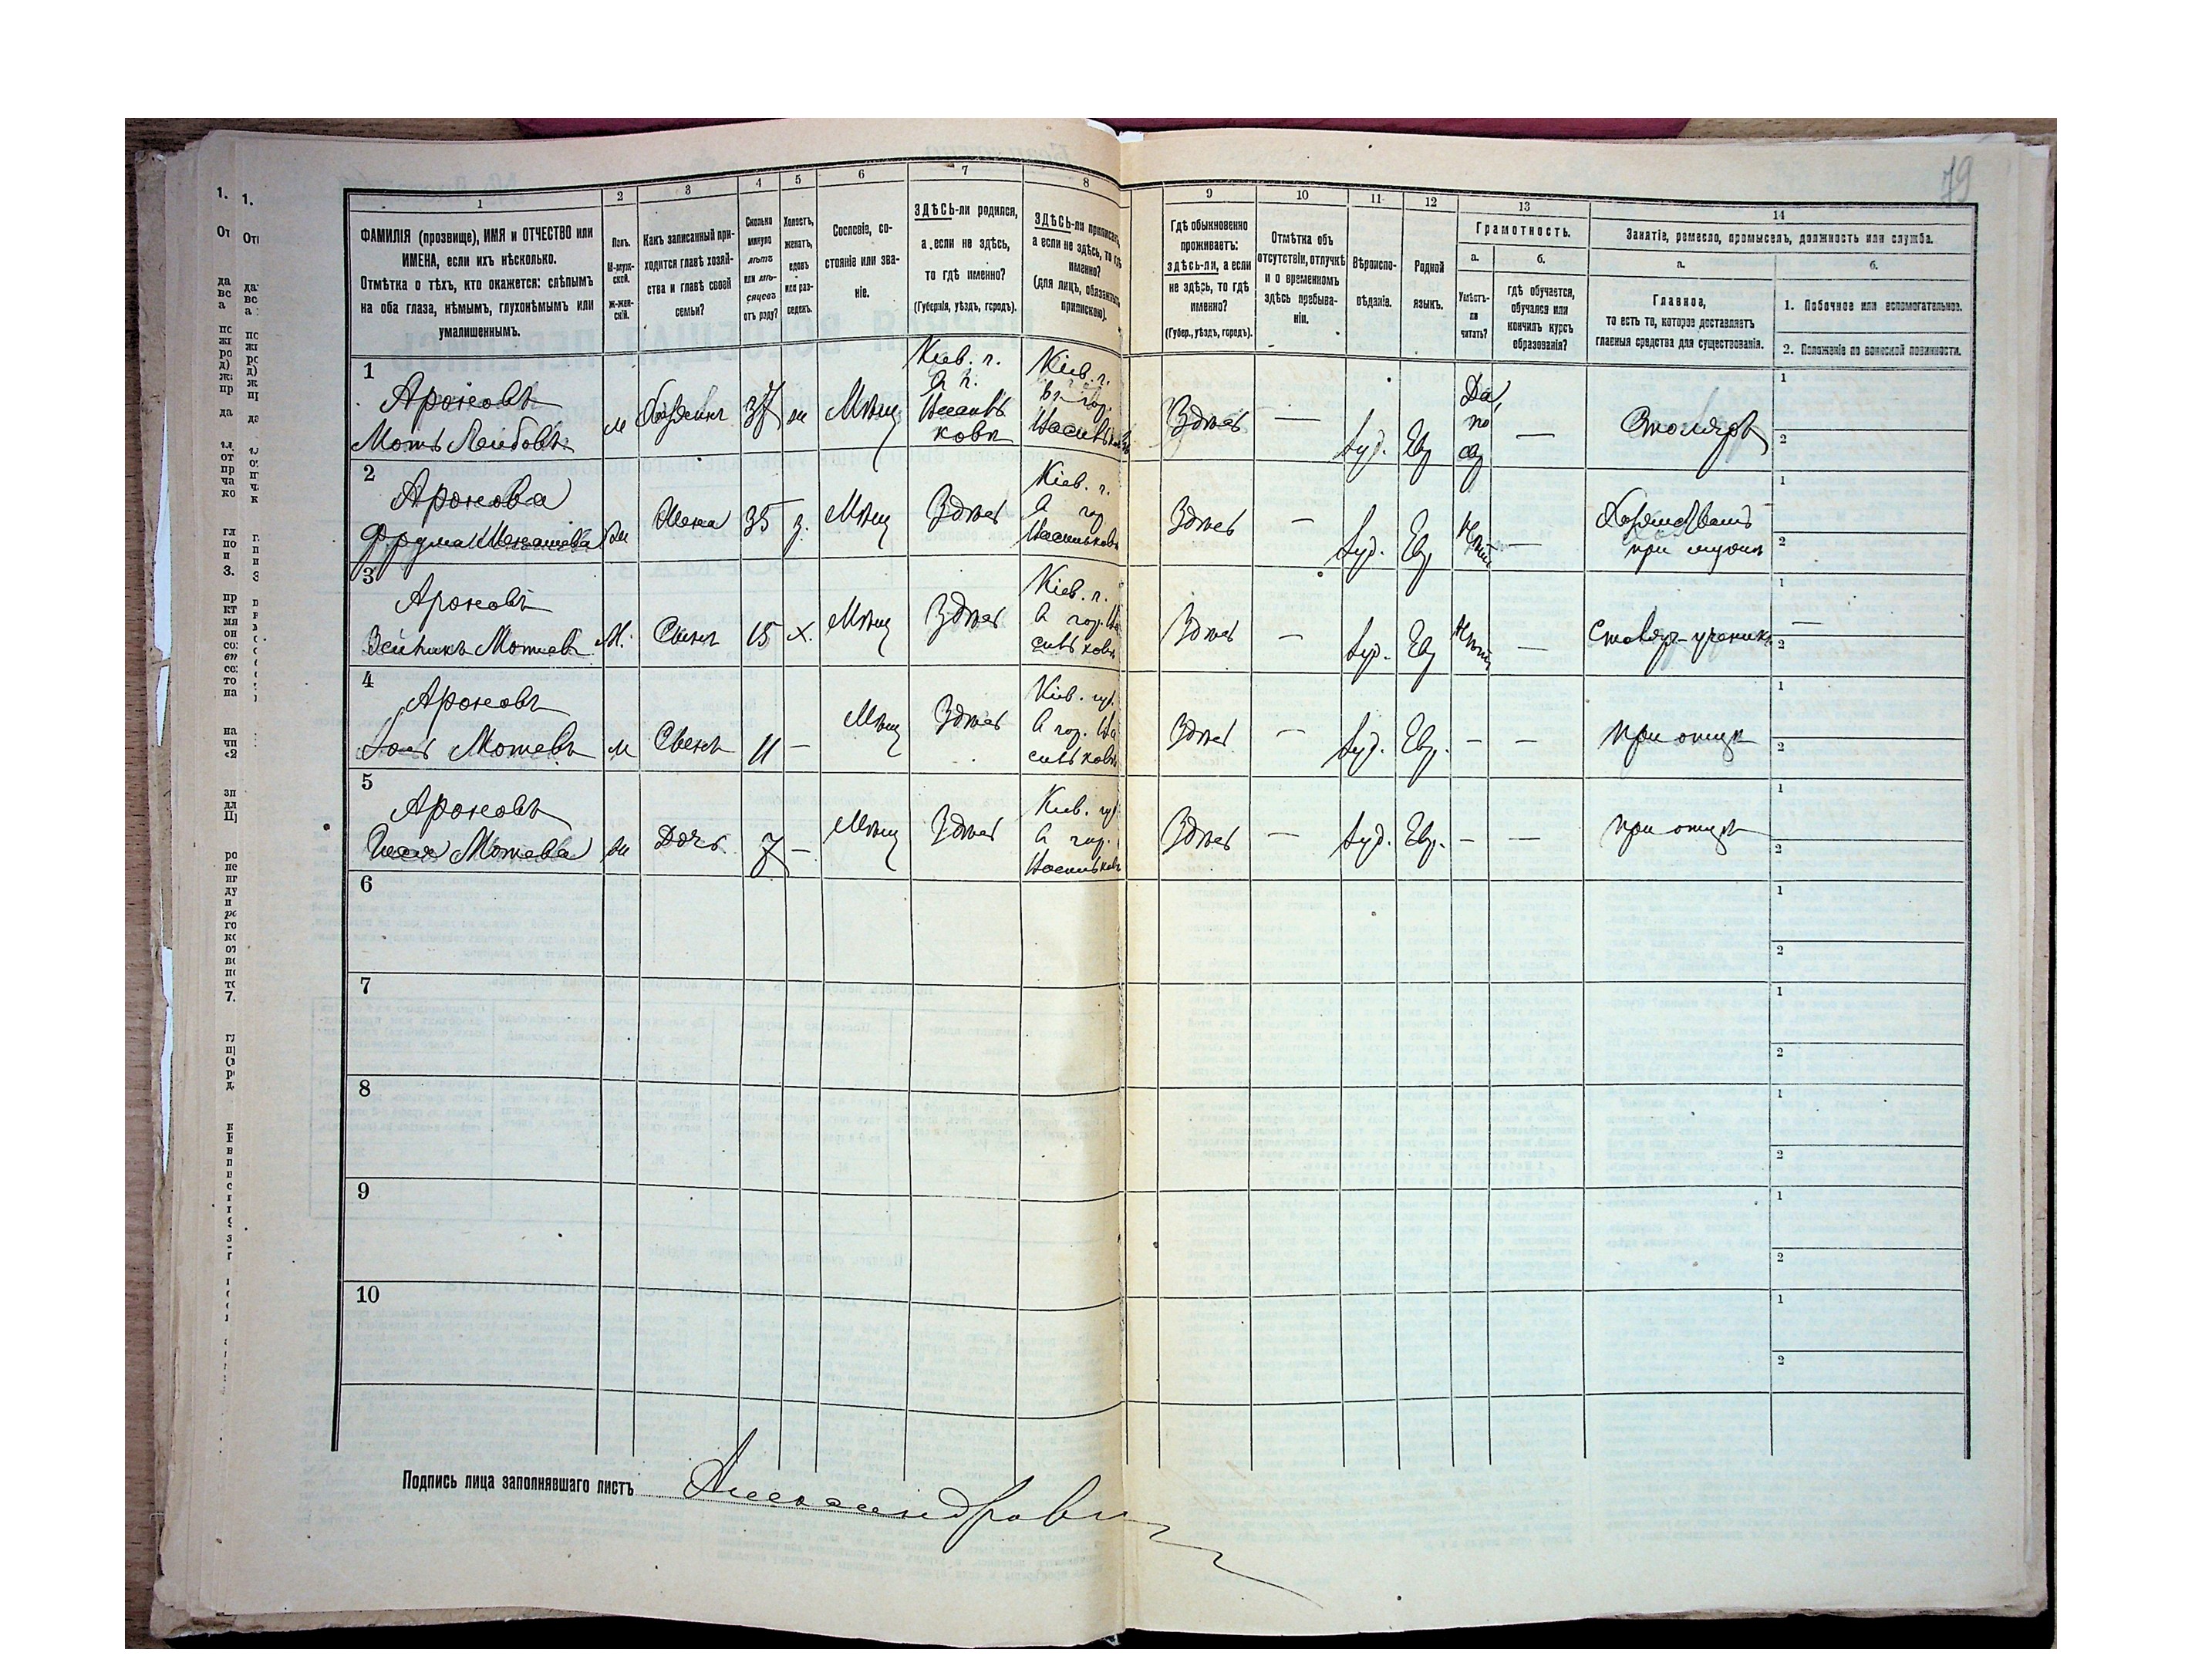 79
1 2 3 4 5 6 7 8 9 10 11 12 13 14
ФАМИЛІЯ (прозвище), ИМЯ и ОТЧЕСТВО или
ИМЕНА, если ихъ нѣсколько.
Отмѣтка о тѣхъ, кто окажется: слѣпымъ
на оба глаза, нѣмымъ, глухонѣмымъ или
умалишеннымъ.
Полъ.
М-муж-
ской.
Ж-жен-
скій.
Какъ записанный при-
ходится главѣ хозяй-
ства и главѣ своей
семьи?
Сколько
минуло
лѣтъ
или мѣ-
сяцевъ
отъ роду?
Холостъ,
женатъ,
вдовъ
или раз-
веденъ.
Сословіе, со-
стояніе или зва-
ніе.
ЗДѢСЬ-ли родился,
а если не здѣсь,
то гдѣ именно?
(Губернія, уѣздъ, городъ).
ЗДѢСЬ-ли приписанъ,
а если не здѣсь, то гдѣ
именно?
(для лицъ, обязанныхъ
припискою).
Гдѣ обыкновенно
проживаетъ:
здѣсь-ли, а если
не здѣсь, то гдѣ
именно?
(Губер., уѣздъ, городъ).
Отмѣтка объ
отсутствіи, отлучкѣ
и о временномъ
здѣсь пребыва-
ніи.
Вѣроиспо-
вѣданіе.
Родной
языкъ.
Грамотность.
а.
Умѣетъ-
ли
читать?
б.
гдѣ обучается,
обучался или
кончилъ курсъ
образованія?
Занятіе, ремесло, промыселъ, должность или служба.
а.
Главное,
то есть то, которое доставляетъ
главныя средства для существованія.
б.
1. Побочное или вспомогательное.
2. Положеніе по воинской повинности.
1
Ароновъ
Моть Лейбовъ
м
Хозяинъ
37
ж
Мѣщ
Кіев. г.
в г.
Василь
ковѣ
Кіев. г.
въ гор.
Васильковѣ
Здѣсь
—
Іуд.
Евр
Да,
по
евр
—
Столяръ
1
2
2
Аронова
Фрума
ж
Жена
35
з.
Мѣщ
Здѣсь
Кіев. г.
в гор
Васильковѣ
Здѣсь
—
Іуд.
Евр
Нѣтъ
—
при мужѣ
1
2
3
Ароновъ
Мотьев
М.
Сынъ
15
х.
Мѣщ
Здѣсь
Кіев. г.
в гор. Ва
сильковѣ
Здѣсь
—
Іуд.
Евр
Нѣтъ
—
Столяр-ученикъ
1
—
2
4
Ароновъ
Мотьевъ
м
Сынъ
11
—
Мѣщ
Здѣсь
Кіев. губ.
в гор. Ва
сильковѣ
Здѣсь
—
Іуд.
Евр.
—
—
при отцѣ
1
2
5
Ароновъ
Мотьева
ж
Дочь
7
—
Мѣщ
Здѣсь
Кіев. губ
в гор.
Васильковѣ
Здѣсь
—
Іуд.
Евр.
—
—
при отцѣ
1
2
6
1
2
7
1
2
8
1
2
9
1
2
10
1
2
Подпись лица заполнявшаго листъ